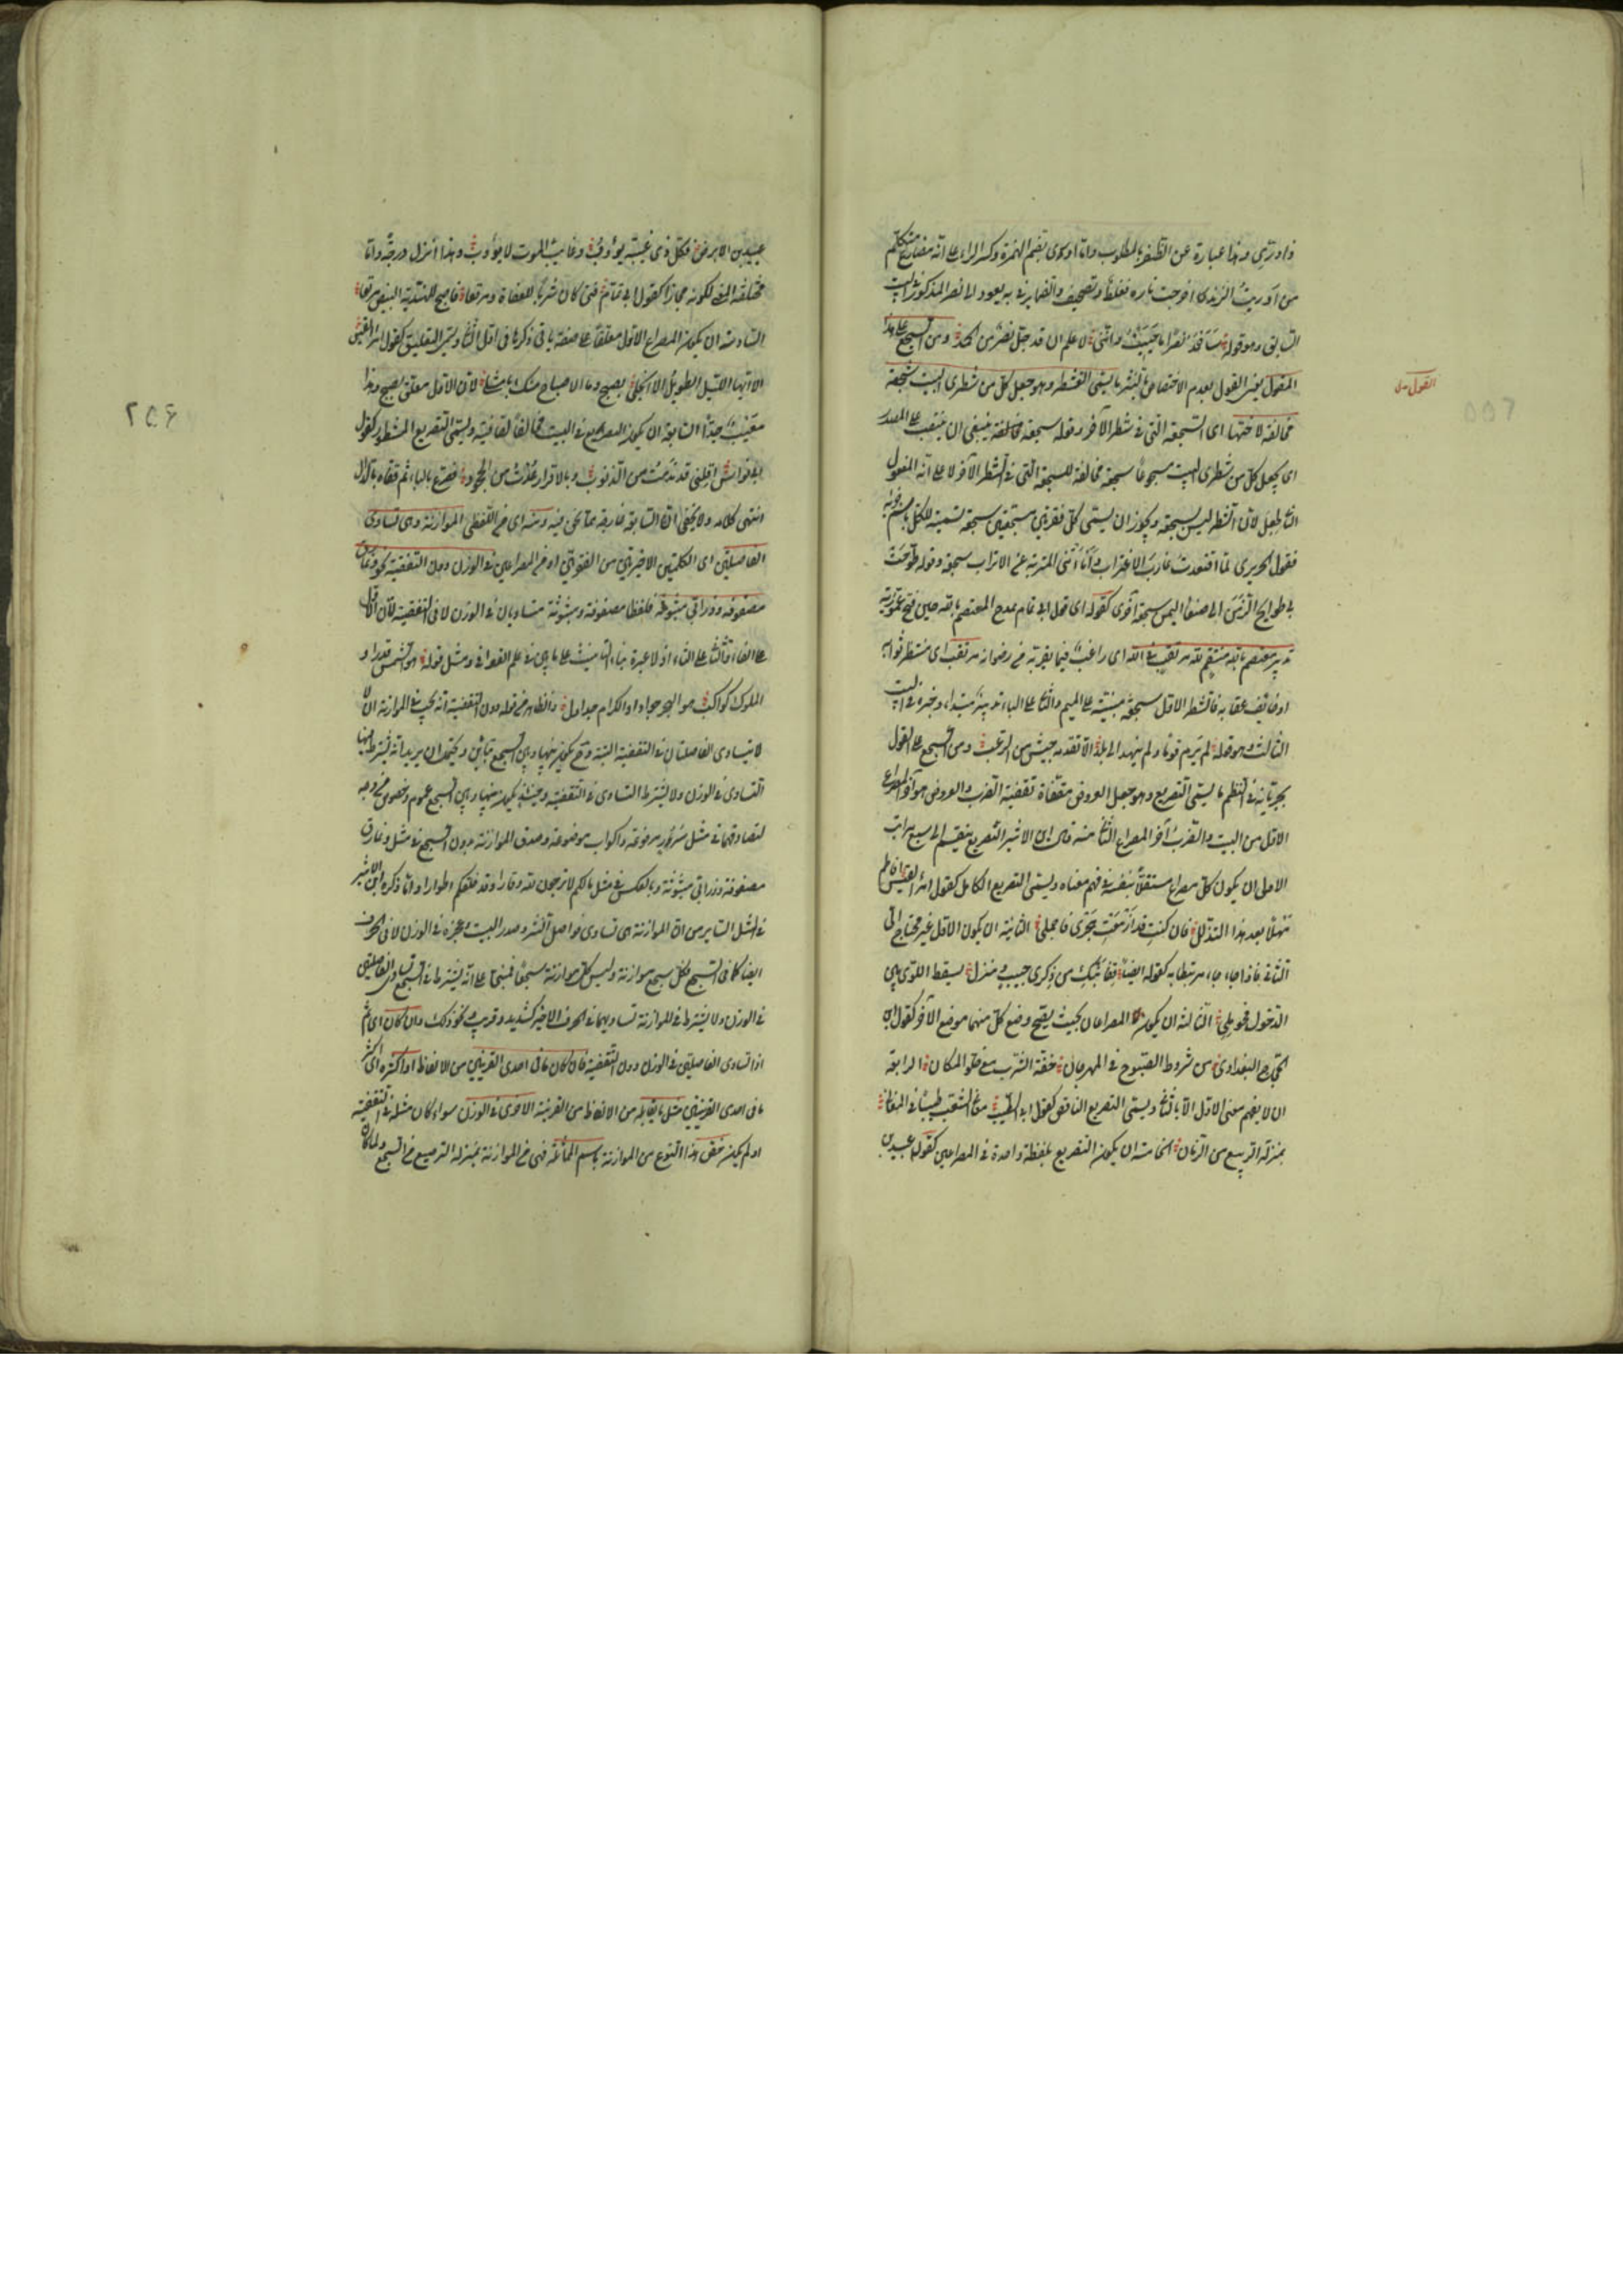 واورى زندى وهذا عبارة عن الظفر بالمطلوب واما اورى بضم الهمزة وكسر الراء على انه مضارع متكلم
من اوريت الزند اى اخرجت ناره فغلط وتصحيف والضمير فى به يعود الى نصر المذكور فى البيت
السابق وهو قوله ساحمد نصرا ما حييت واننى لاعلم ان قد جل نصر عن الحمد ومن السجع على هذا
القول يعنى القول بعدم الاختصاص بالنثر ما يسمى التشطير وهو جعل كل من شطرى البيت سجعة
مخالفة لاختها اى السجعة التى فى الشطر الآخر وقوله سجعة مخالفة ينبغى ان ينتصب على المصدر
اى يجعل كل من شطرى البيت مسجوعا سجعة مخالفة للسجعة التى فى الشطر الآخر لا على انه المفعول
الثانى لجعل لان الشطر ليس بسجعة ويجوز ان يسمى كل فقرتين مسجعتين سجعة تسمية للكل باسم جزئه
فقول الحريرى لما اقتعدت غارب الاغتراب وانأتنى المتربة عن الاتراب سجعة وقوله طوحت
بى طوايح الزمن الى صنعاء اليمن سجعة اخرى كقوله اى قول ابى تمام يمدح المعتصم بالله حين فتح عمورية
تدبير معتصم بالله منتقم لله مرتغب فى الله اى راغب فيما يقربه من رضوانه مرتقب اى منتظر ثوابه
او خائف عقابه فالشطر الاول سجعة مبنية على الميم والثانى على الباء تدبير مبتدأ وخبره فى البيت
الثالث وهو قوله لم يرم قوما ولم ينهد الى بلد الا تقدمه جيش من الرعب ومن السجع على القول
بجريانه فى النظم ما يسمى التصريع وهو جعل العروض مقفاة تقفية الضرب والعروض هو آخر المصراع
الاول من البيت والضرب آخر المصراع الثانى منه قال ابن الاثير التصريع ينقسم الى سبع مراتب
الاولى ان يكون كل مصراع مستقلا بنفسه فى فهم معناه ويسمى التصريع الكامل كقول امرئ القيس افاطم
مهلا بعد هذا التدلل فان كنت قد ازمعت هجرى فاجملى الثانية ان يكون الاول غير محتاج الى
الثانى فاذا جاء جاء مرتبطا به كقوله ايضا قفا نبك من ذكرى حبيب ومنزل بسقط اللوى بين
الدخول فحومل الثالثة ان يكون المصراعان بحيث يصح وضع كل منهما موضع الآخر كقول ابن
الحجاج البغدادى من شروط الصبوح فى المهرجان خفة الشرب مع خلو المكان الرابعة
ان لا يفهم معنى الاول الا بالثانى ويسمى التصريع الناقص كقول ابى الطيب مغانى الشعب طيبا فى المغانى
بمنزلة الربيع من الزمان الخامسة ان يكون التصريع بلفظة واحدة فى المصراعين كقوله عبيد بن
القول
٢٥٥
عبيد بن الابرص فكل ذى غيبة يؤوب وغايب الموت لا يؤوب وهذا انزل درجة واما
مختلفة المعنى لكونه مجازا كقول ابى تمام فتى كان شربا للعفاة ومرتعا فاصبح للهندية البيض مرتعا
السادسة ان يكون المصراع الاول معلقا على صفة ياتى ذكرها فى اول الثانى ويسمى التعليق كقول امرئ القيس
الا ايها الليل الطويل الا انجلى بصبح وما الاصباح منك بامثل لان الاول معلق بصبح وهذا
معيب جدا السابعة ان يكون التصريع فى البيت مخالفا لقافيته ويسمى التصريع المشطور كقول
ابى نواس اقلنى قد ندمت من الذنوب وبالاقرار عذت من الجحود فصرع بالباء ثم قفاه بالدال
انتهى كلامه ولا يخفى ان السابعة خارجة مما نحن فيه ومنه اى من اللفظى الموازنة وهى تساوى
الفاصلتين اى الكلمتين الاخيرتين من الفقرتين او من المصراعين فى الوزن دون التقفية نحو ونمارق
مصفوفة وزرابى مبثوثة فلفظا مصفوفة ومبثوثة متساويان فى الوزن لا فى التقفية لان الاول
على الفاء والثانى على الثاء اذ لا عبرة بتاء التانيث على ما بين فى علم القوافى ومثل قوله هو الشمس قدرا و
الملوك كواكب هو البحر جودا والكرام جداول والظاهر من قوله دون التقفية انه يجب فى الموازنة ان
لا يتساوى الفاصلتان فى التقفية البتة وح يكون بينها وبين السجع تباين ويحتمل ان يريد انه يشترط فيها
التساوى فى الوزن ولا يشترط التساوى فى التقفية وحينئذ يكون بينها وبين السجع عموم وخصوص من وجه
لتصادقهما فى مثل سرر مرفوعة واكواب موضوعة وصدق الموازنة بدون السجع فى مثل ونمارق
مصفوفة وزرابى مبثوثة وبالعكس فى مثل ما لكم لا ترجون لله وقارا وقد خلقكم اطوارا واما ذكره ابن الاثير
فى المثل السائر من ان الموازنة هى تساوى فواصل النثر وصدر البيت وعجزه فى الوزن لا فى الحرف
ايضا كما فى السجع فكل سجع موازنة وليس كل موازنة سجعا فمبنى على انه يشترط فى السجع تساوى الفاصلتين
فى الوزن ولا يشترط فى الموازنة تساويهما فى الحرف الاخير كشديد وقريب ونحو ذلك وان كان اى ثم
اذا تساوى الفاصلتين فى الوزن دون التقفية فان كان ما فى احدى القرينتين من الالفاظ او اكثره اى اكثر
ما فى احدى القرينتين مثل ما يقابله من الالفاظ من القرينة الاخرى فى الوزن سواء كان مثله فى التقفية
او لم يكن خص هذا النوع من الموازنة باسم المماثلة فهى من الموازنة بمنزلة الترصيع من السجع ولما كان
٢٥۶